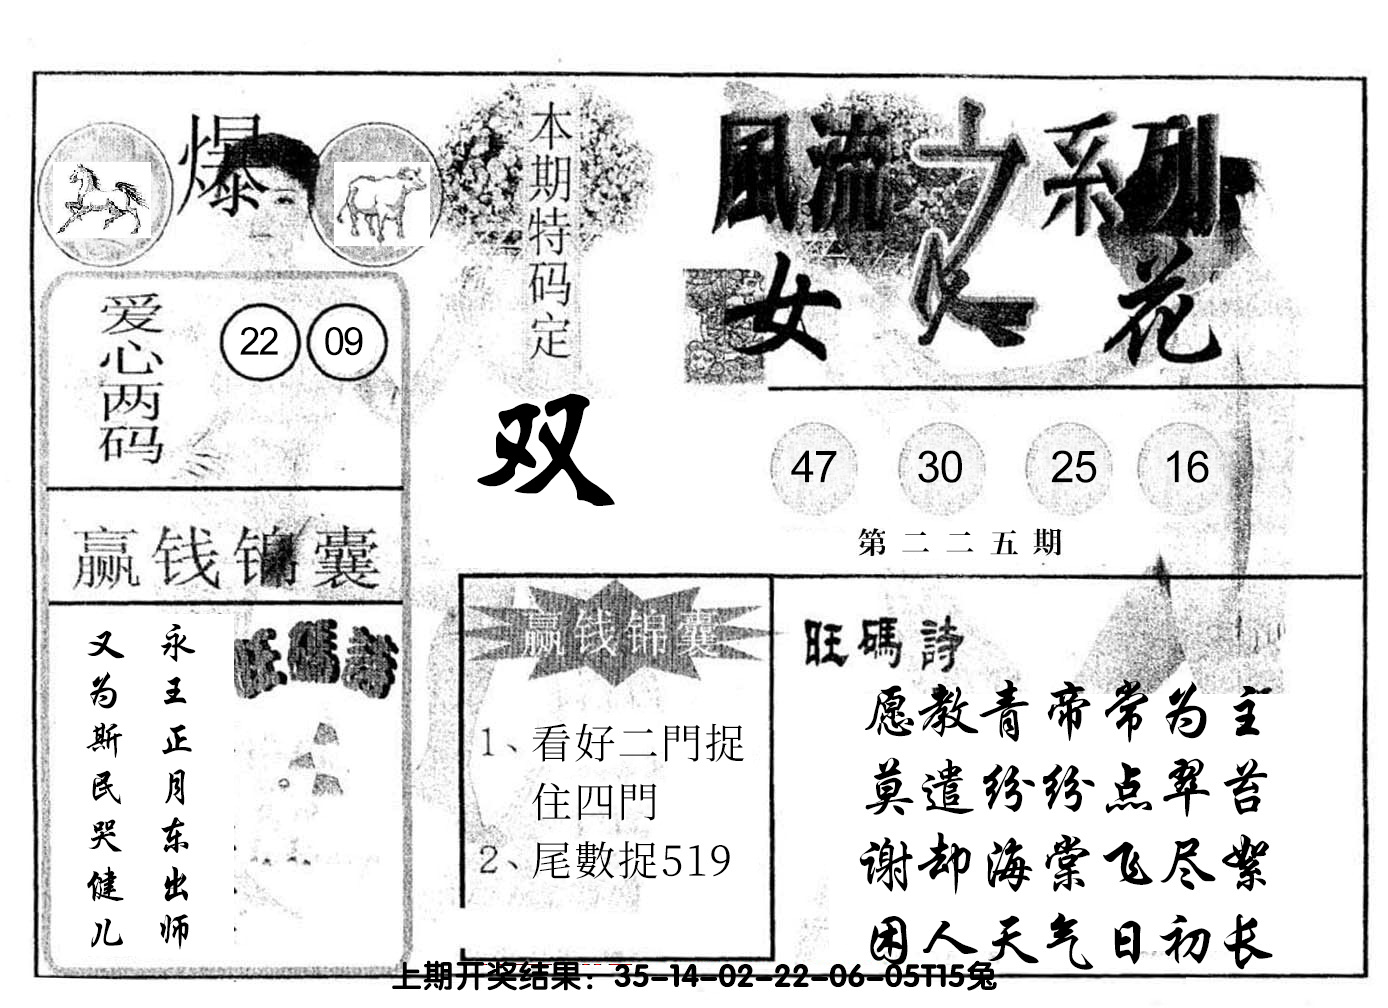 爆
本期特码定
双
風流之系列
女人花
爱心两码
22 09
47 30 25 16
第二二五期
赢钱锦囊
旺碼詩
永王正月东出师
又为斯民哭健儿
赢钱锦囊
1、看好二門捉
住四門
2、尾數捉519
旺碼詩
愿教青帝常为主
莫遣纷纷点翠苔
谢却海棠飞尽絮
困人天气日初长
上期开奖结果：35-14-02-22-06-05T15兔